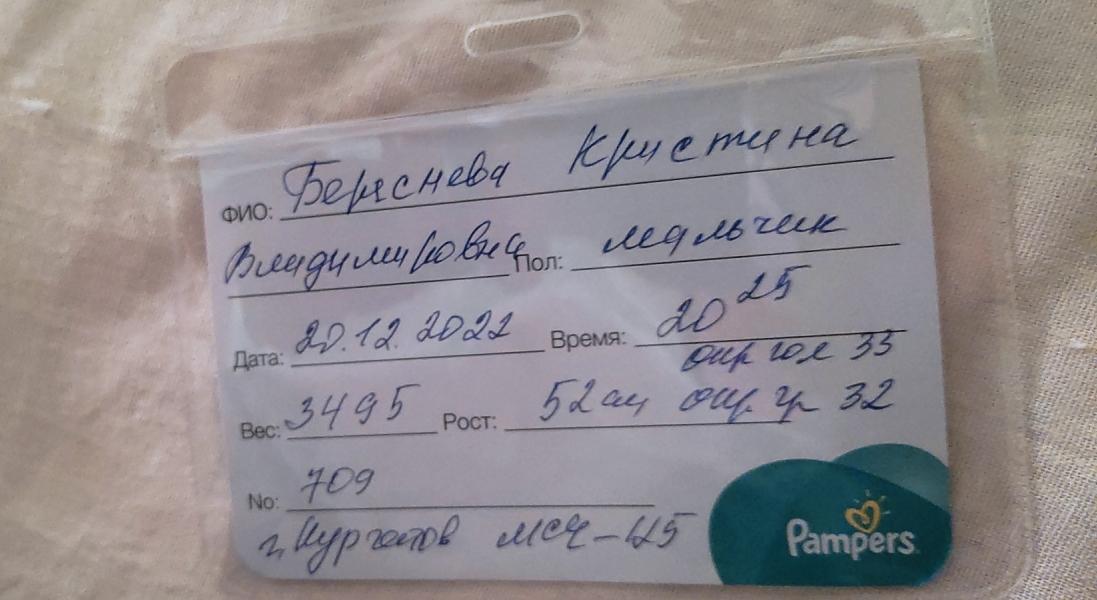 ФИО: Береснева Кристина
Владимировна Пол: мальчик
Дата: 20.12.2022 Время: 20 25
окр гол 33
Вес: 3495 Рост: 52 см окр. гр 32
No: 709
г. Курчатов МСЧ-125
Pampers